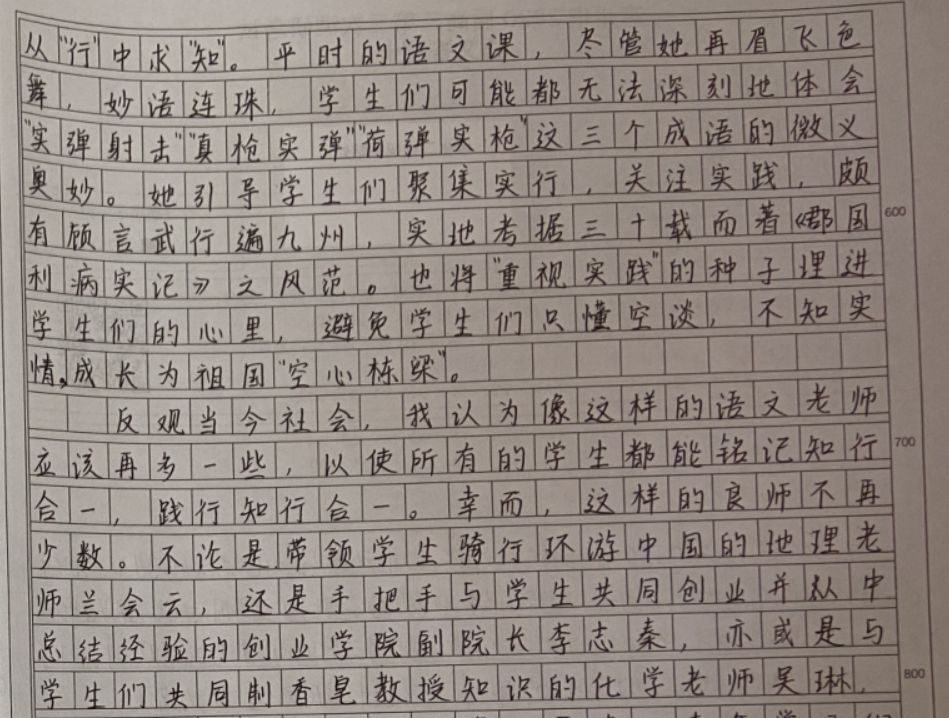 从"行"中求"知"。平时的语文课，尽管她再眉飞色
舞，妙语连珠，学生们可能都无法深刻地体会
"实弹射击""真枪实弹""荷弹实枪"这三个成语的微义
奥妙。她引导学生们聚集实行，关注实践，颇
有顾言武行遍九州，实地考据三十载而著《郡国
600
利病实记》之风范。也将"重视实践"的种子埋进
学生们的心里，避免学生们只懂空谈，不知实
情，成长为祖国"空心栋梁"。
反观当今社会，我认为像这样的语文老师
应该再多一些，以使所有的学生都能铭记知行
700
合一，践行知行合一。幸而，这样的良师不再
少数。不论是带领学生骑行环游中国的地理老
师兰会云，还是手把手与学生共同创业并从中
总结经验的创业学院副院长李志秦，亦或是与
学生们共同制香皂教授知识的化学老师吴琳，
800